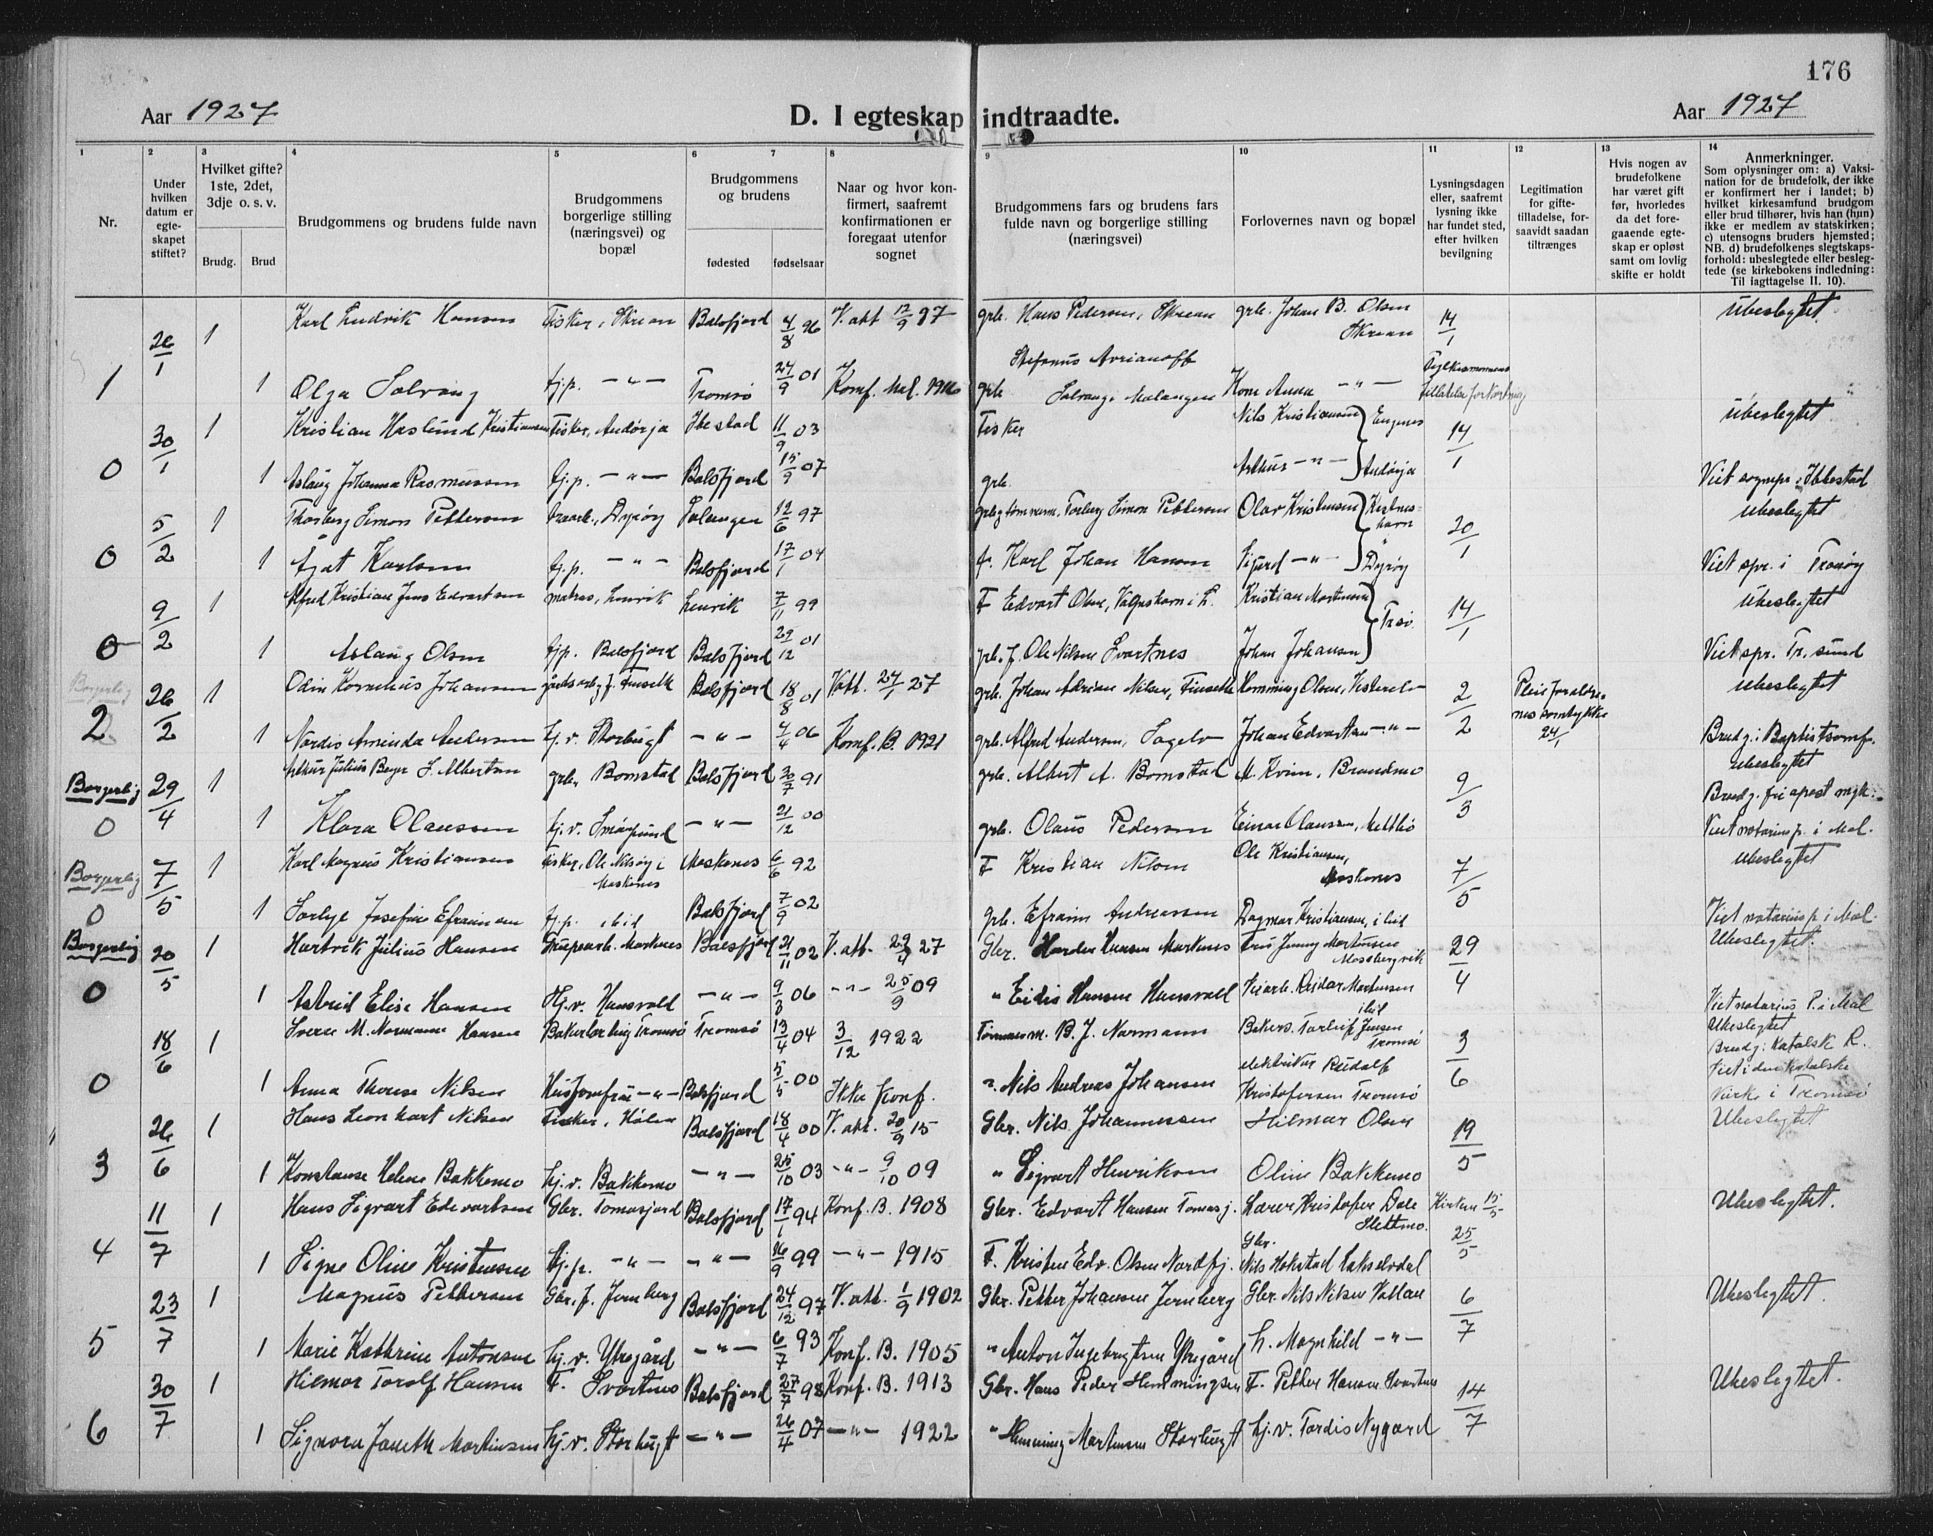 176
Aar 1927
D. I egteskap indtraadte.
Aar 1927
1 2 3 4 5 6 7 8 9 10 11 12 13 14
Nr.
Under hvilken datum er egteskapet stiftet?
Hvilket gifte? 1ste, 2det, 3dje o. s. v.
Brudg. Brud
Brudgommens og brudens fulde navn
Brudgommens borgerlige stilling (næringsvei) og bopæl
Brudgommens og brudens
fødested fødselsaar
Naar og hvor konfirmert, saafremt konfirmationen er foregaat utenfor sognet
Brudgommens fars og brudens fars fulde navn og borgerlige stilling (næringsvei)
Forlovernes navn og bopæl
Lysningsdagen eller, saafremt lysning ikke har fundet sted, efter hvilken bevilgning
Legitimation for giftetilladelse, forsaavidt saadan tiltrænges
Hvis nogen av brudefolkene har været gift før, hvorledes da det foregaaende egteskap er opløst samt om lovlig skifte er holdt
Anmerkninger.
Som oplysninger om: a) Vaksination for de brudefolk, der ikke er konfirmert her i landet; b) hvilket kirkesamfund brudgom eller brud tilhører, hvis han (hun) ikke er medlem av statskirken; c) utensogns bruders hjemsted; NB. d) brudefolkenes slegtskapsforhold: ubeslegtede eller beslegtede (se kirkebokens indledning: Til iagttagelse II. 10).
26/1 1 Karl Ludvik Hansen Fisker, Skrean Balsfjord 4/8 96 V. att 12/9 97 grb. Hans Pedersen, Skrean grb. Johan B. Olsen Skrean 14/1 Ubeslegtet.
1 1 Olga Solvang hj.p. —"— Tromsø 24/9 01 Konf. Mal. 1916 grb Stefanus Avrianoff Solvang i Malangen Kone Anna —"— Fylkesmannens
30/1 1 Kristian Haslund Kristiansen Fisker, Andørja Ibestad 11/9 03 Fisker Nils Kristiansen Engenes 14/1 ubeslegtet
0 1 Aslaug Johanna Rasmussen hj.p. —"— Balsfjord 15/9 07 grb. Arthur —"— Andørja Viet sognepr. i Ibbestad
5/2 1 Thorberg Simon Pettersen Dyrøy Salangen 12/6 97 Torberg Simon Pettersen Olav Kristensen 20/1 Ubeslegtet
0 1 Ågat Karlsen hj.p. —"— Balsfjord 17/1 04 f. Karl Johan Hansen Sigurd —"— Dyrøy Viet spr. i Tranøy
9/2 1 Alfred Kristian Jens Edvartsen matros, Lenvik Lenvik 7/11 99 F Edvart Olsen, Kristian Martinsen Tr.sø 14/1 Ubeslegtet
0 1 Aslaug Olsen hjp. Balsfjord Balsfjord 29/12 01 grb. f. Ole Nilsen Svartnes Johan Johansen Viet spr. Tr. sund
Borgerlig 26/2 1 Odin Kornelius Johansen gårdsarb. f. Finselth Balsfjord 18/8 01 Vatt. 24/1 27 grb. Johan Adrian Nilsen, Finselth Hemming Olsen, 2/2 Ubeslegtet
2 1 Nordis Aminda Andersen hj.v. Storbugt —"— 4/4 06 Konf. B. 1921 grb. Alfred Andersen, Sagelv Johan Edvartsen —"— 24/1 Brudg. i Baptistsamf.
Borgerlig 29/4 1 Arthur Julius Beyer S. Albertsen grb, Bomstad Balsfjord 30/7 91 grb. Albert A. Bomstad M. Kvien, Brandmo 9/3 ubeslegtet
0 1 Klara Olaussen hj.v. Smørsund —"— 21/12 00 grb. Olaus Pedersen Einar Olaussen, Brudg. fri apost. mgh.
Viet notarius p. i Mal.
Borgerlig 7/5 1 Karl Magnus Kristiansen Fisker, Ole Nilsøy i Moskenes Moskenes 6/6 92 F Kristian Nilsen Ole Kristiansen, Moskenes 7/5 Ubeslegtet
0 1 Josefine Efraimsen hj.p. ibid Balsfjord 7/9 02 grb. Efraim Andreassen Dagmar Kristiansen, ibid Viet notarius p. i Mal.
Borgerlig 20/5 1 Hartvik Julius Hansen Markenes Balsfjord 21/11 02 V. att. 29/4 27 Gbr. Hansen Markenes Fru Jenny Mortensen Mossbergvik 29/4 Ubeslegtet.
0 1 Astrid Elise Hansen Hj.v. Hansvold —"— 9/3 06 —"— 25/9 09 " Eidis Hansen Hansvold Reidar Martensen ibid Viet notarius P. i Mal
18/6 1 Sverre M. Normann Hansen Bakerlærling Tromsø Tromsø 13/4 04 3/12 1922 Tømmerm. B. J. Normann Bakers. Torleif Jensen Tromsø 3/6 Ubeslegtet
Brudg: Katolsk R.
0 1 Anna Therese Nilsen Husjomfru —"— Balsfjord 5/5 00 Ikke konf. ". Nils Andreas Johansen elektriker Rudolf Kristofersen Tromsø Viet i den katolske Kirke i Tromsø
26/6 1 Hans Leonhart Nilsen Fisker, Balsfjord 18/4 00 V. att. 20/9 15 Gbr. Nils Johannessen Hilmar Olsen 19/5 Ubeslegtet
3 1 Konstanse Helene Bakkemo hj.v. Bakkemo —"— 25/10 03 —"— 9/10 09 " Sigvart Henriksen Oline Bakkemo
11/7 1 Hans Sigvart Edevartsen Gbr. Tomasjord Balsfjord 17/1 94 Konf. B. 1908 Gbr. Edvart Hansen Tomasj. Lærer Kristofer Dale Slettmo. 15/5 Ubeslegtet.
4 1 Signe Oline Kristensen hj.p. —"— —"— 16/9 99 —"— 1915 F. Kristen Edv. Olsen Nordfj. Gbr. Nils Hokstad Lakselvdal 25/5
23/7 1 Magnus Pettersen Gbr. f. Jernberg Balsfjord 24/12 97 V. att. 1/9 1902 Gbr. Petter Johansen Jernberg Gbr. Nils Nilsen Vollan 6/7 Ubeslegtet.
5 1 Marie Kathrine Antonsen hj.v. Ytregård —"— 6/7 93 Konf. B. 1905 " Anton Ingebrigtsen Ytregård L. Magnhild —"—
30/7 1 Hilmar Torolf Hansen F. Svartnes Balsfjord 27/7 98 Konf. B. 1913 Gbr. Hans Peder Hemmingsen F. Petter Hansen Svartnes 14/7 Ubeslegtet.
6 1 Signora Janeth Martinsen hj.v. Storbugt —"— 26/4 07 —"— 1922 " Hemming Martensen Storbugt hj.v. Tordis Nygård